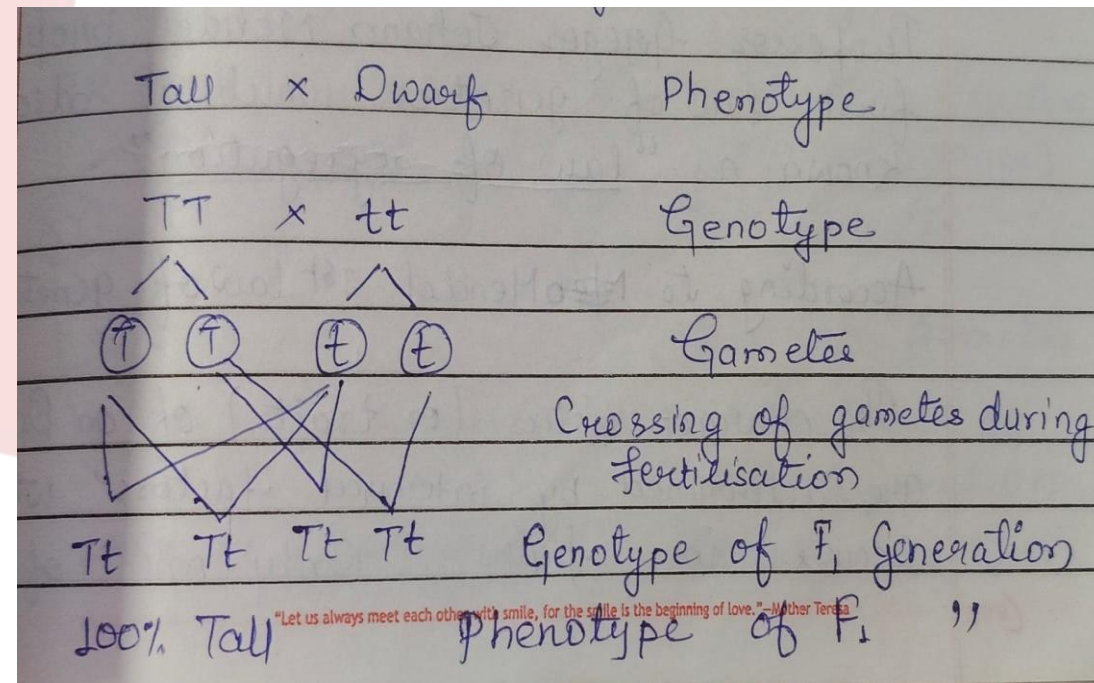 Tall × Dwarf Phenotype
TT × tt Genotype
T T t t Gametes
Crossing of gametes during
fertilisation
Tt Tt Tt Tt Genotype of F1 Generation
"Let us always meet each other with smile, for the smile is the beginning of love."–Mother Teresa
100% Tall Phenotype of F1 "